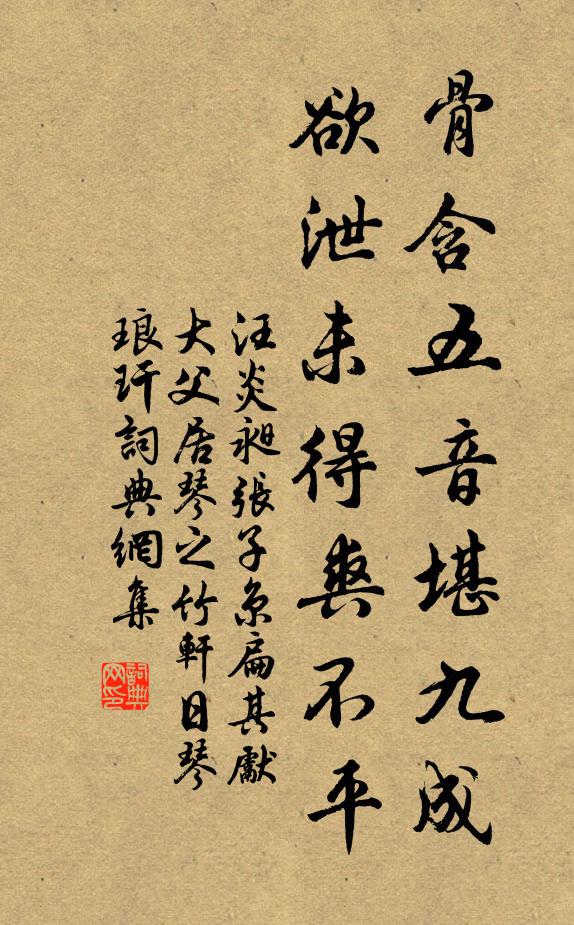 骨含五音堪九成
欲泄未得與不平
汪炎昶張子京扁其獻
大父居琴之竹軒日琴
琅玕詞典網集
詞典
网印